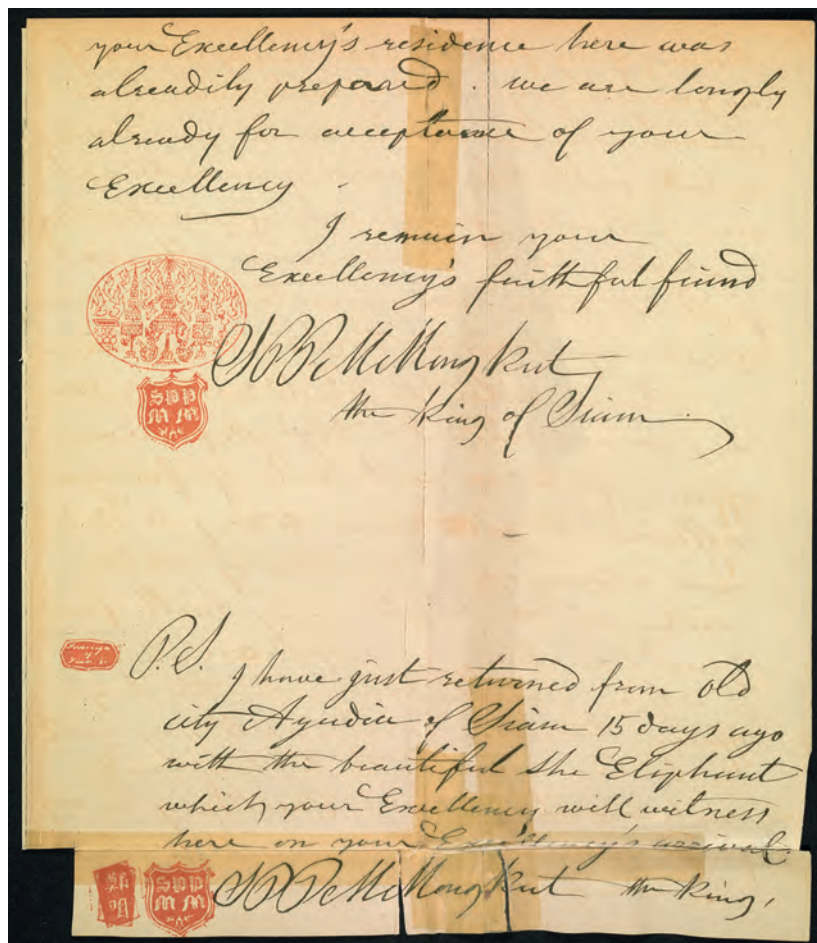 your Excellency's residence here was
alreadily prepared. we are longly
already for acceptance of your
Excellency.
I remain your
Excellency's faithful friend
SPPM Mongkut
the King of Siam
SPP
MM
P.S. I have just returned from old
city Ayudia of Siam 15 days ago
with the beautiful she Eliphant
which your Excellency will witness
here on your Excellency's arrival.
SPP
MM
SPPM Mongkut the King,